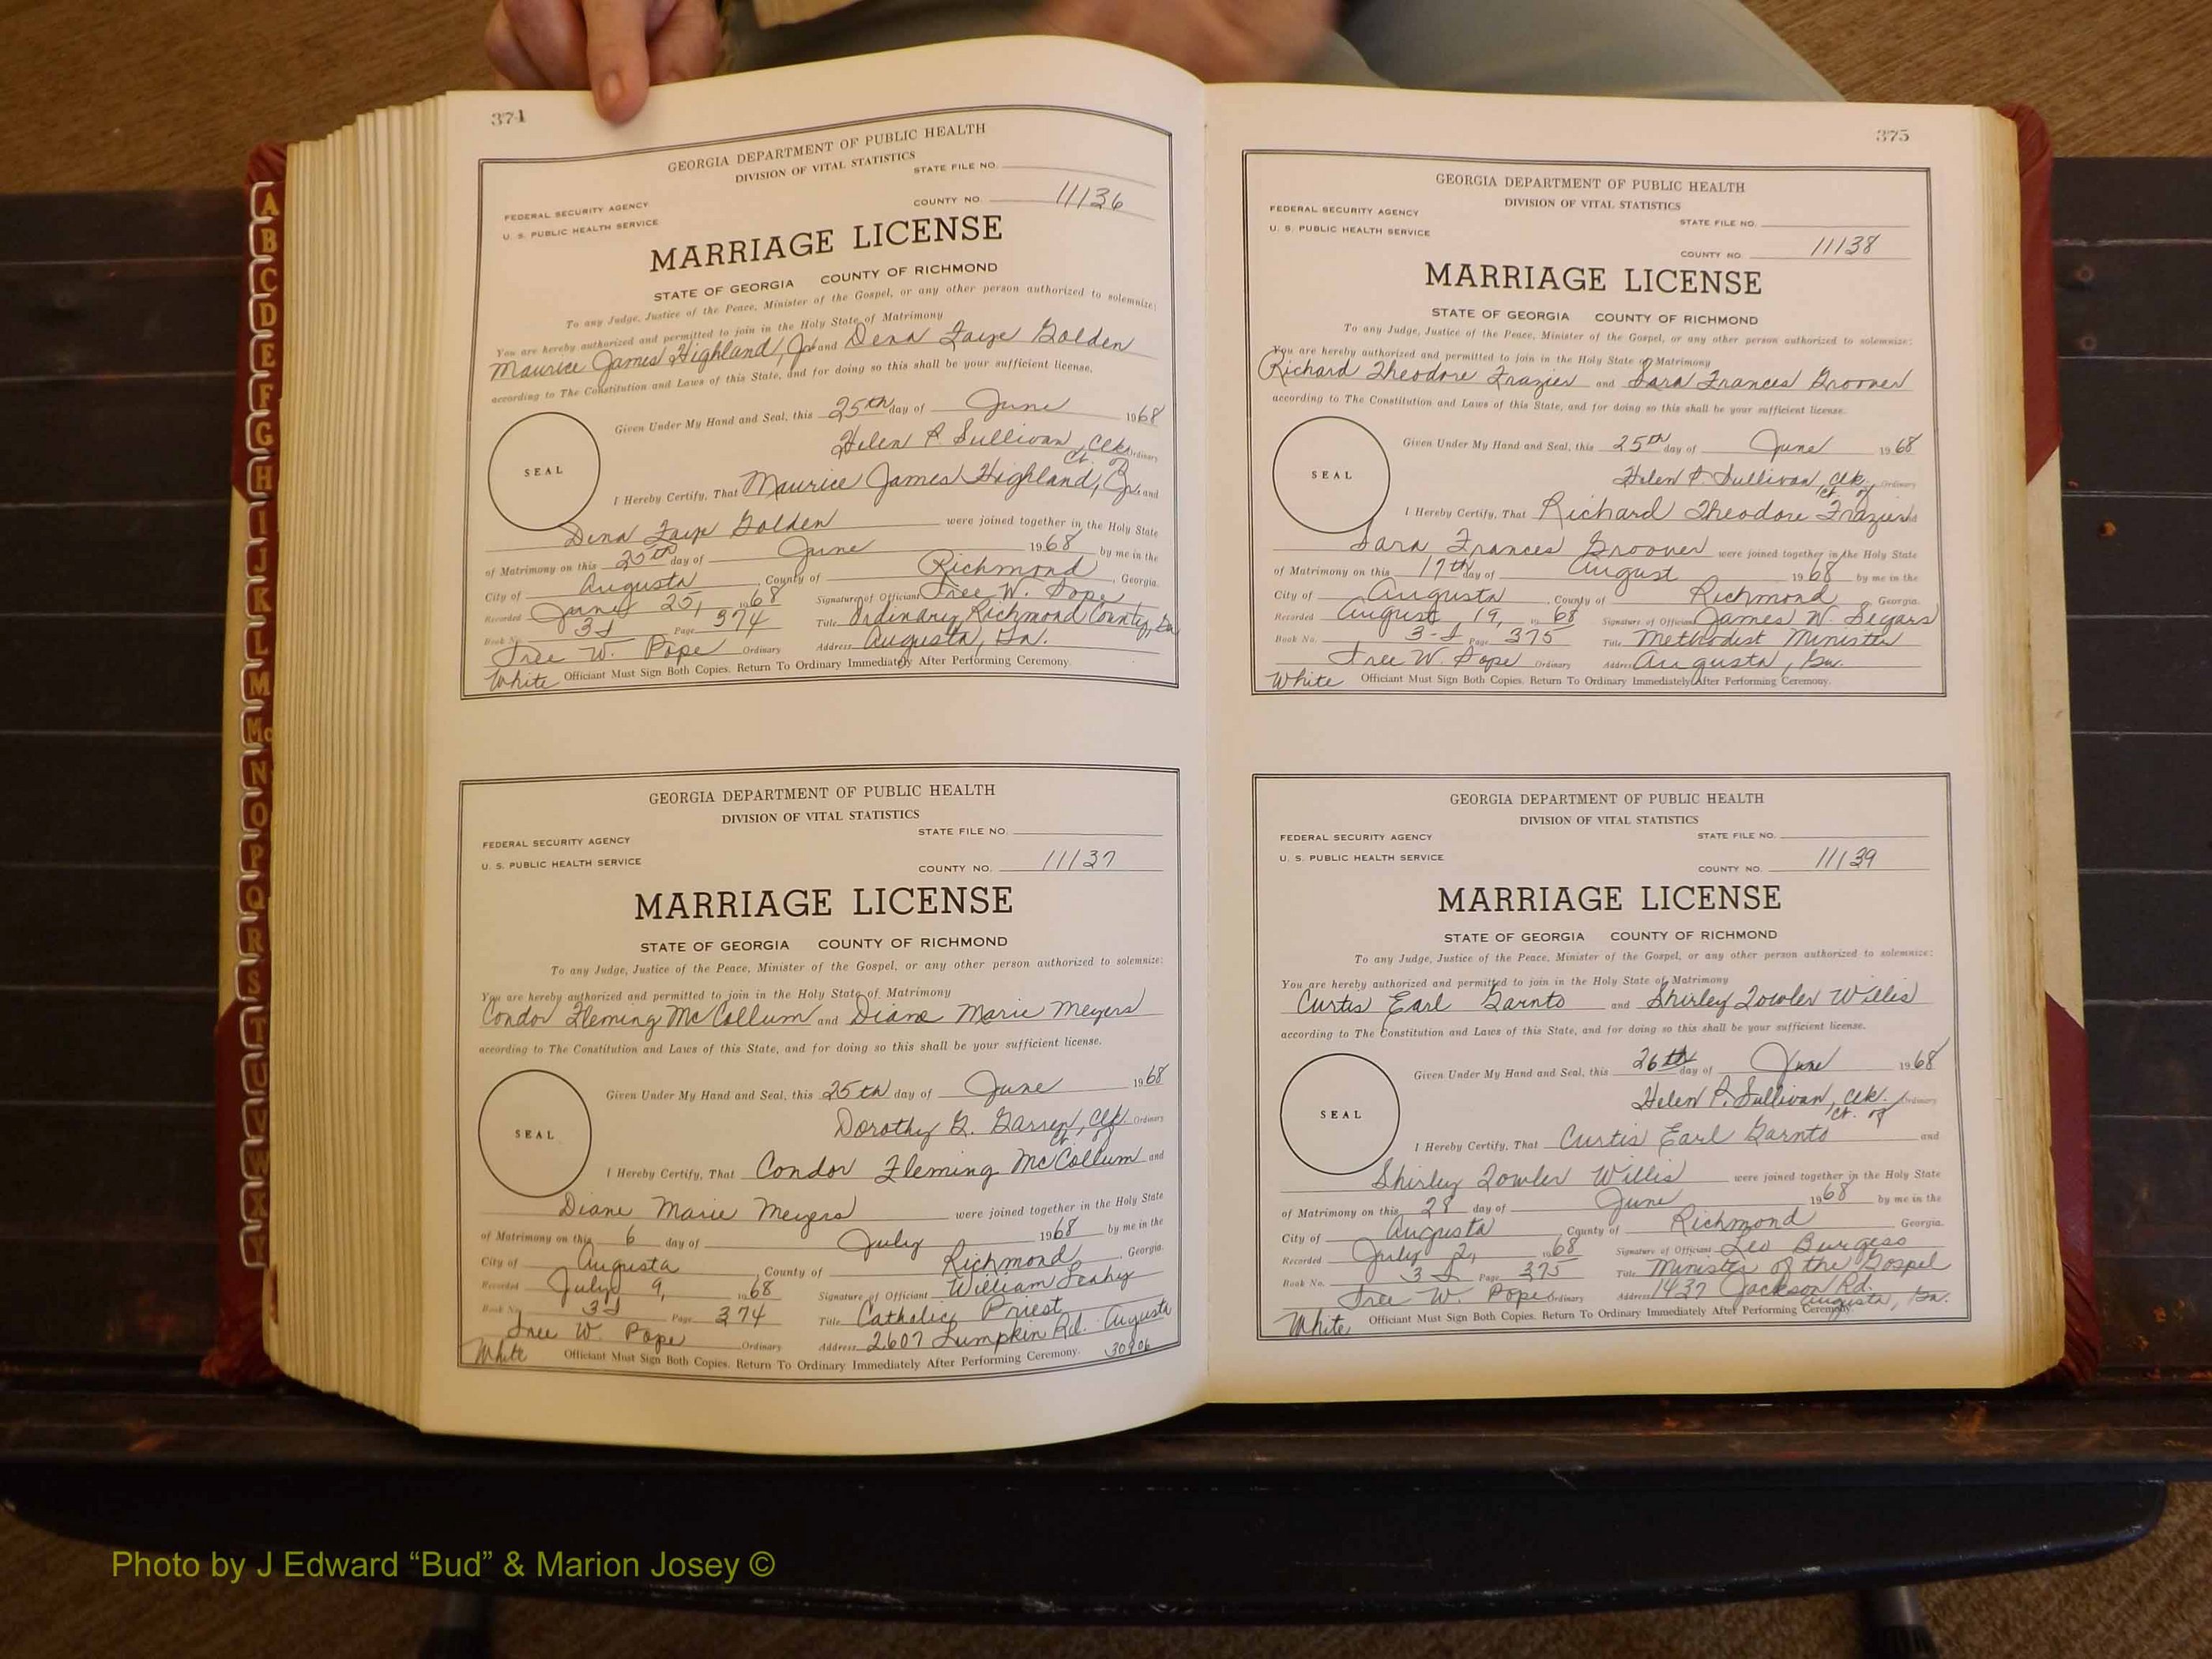 374
GEORGIA DEPARTMENT OF PUBLIC HEALTH
DIVISION OF VITAL STATISTICS
STATE FILE NO.
FEDERAL SECURITY AGENCY
COUNTY NO. 11136
U. S. PUBLIC HEALTH SERVICE
MARRIAGE LICENSE
STATE OF GEORGIA COUNTY OF RICHMOND
To any Judge, Justice of the Peace, Minister of the Gospel, or any other person authorized to solemnize:
You are hereby authorized and permitted to join in the Holy State of Matrimony
Maurice James Highland, Jr. and Dena Faye Golden
according to The Constitution and Laws of this State, and for doing so this shall be your sufficient license.
Given Under My Hand and Seal, this 25th day of June 1968
Helen P. Sullivan, Clk. Ordinary
Ct. of
SEAL
I Hereby Certify, That Maurice James Highland, Jr. and
Dena Faye Golden were joined together in the Holy State
of Matrimony on this 25th day of June 1968 by me in the
City of Augusta, County of Richmond, Georgia.
Recorded June 25, 1968 Signature of Official Tree W. Pope
Book No. 3J Page 374 Title Ordinary, Richmond County, Ga
Tree W. Pope Ordinary Address Augusta, Ga.
White Officiant Must Sign Both Copies. Return To Ordinary Immediately After Performing Ceremony.
GEORGIA DEPARTMENT OF PUBLIC HEALTH
DIVISION OF VITAL STATISTICS
STATE FILE NO.
FEDERAL SECURITY AGENCY
U. S. PUBLIC HEALTH SERVICE
COUNTY NO. 11137
MARRIAGE LICENSE
STATE OF GEORGIA COUNTY OF RICHMOND
To any Judge, Justice of the Peace, Minister of the Gospel, or any other person authorized to solemnize:
You are hereby authorized and permitted to join in the Holy State of Matrimony
Condor Fleming McCollum and Diane Marie Meyers
according to The Constitution and Laws of this State, and for doing so this shall be your sufficient license.
Given Under My Hand and Seal, this 25th day of June 1968
Dorothy G. Garren, Clk. Ordinary
Ct. of
SEAL
I Hereby Certify, That Condor Fleming McCollum and
Diane Marie Meyers were joined together in the Holy State
of Matrimony on this 6 day of July 1968 by me in the
City of Augusta, County of Richmond, Georgia.
Recorded July 9, 1968 Signature of Officiant William Leahy
Book No. 3J Page 374 Title Catholic Priest
Tree W. Pope Ordinary Address 2607 Lumpkin Rd. Augusta
White Officiant Must Sign Both Copies. Return To Ordinary Immediately After Performing Ceremony. 30906
375
GEORGIA DEPARTMENT OF PUBLIC HEALTH
DIVISION OF VITAL STATISTICS
FEDERAL SECURITY AGENCY
STATE FILE NO.
U. S. PUBLIC HEALTH SERVICE
COUNTY NO. 11138
MARRIAGE LICENSE
STATE OF GEORGIA COUNTY OF RICHMOND
To any Judge, Justice of the Peace, Minister of the Gospel, or any other person authorized to solemnize:
You are hereby authorized and permitted to join in the Holy State of Matrimony
Richard Theodore Frazier and Sara Frances Groover
according to The Constitution and Laws of this State, and for doing so this shall be your sufficient license.
Given Under My Hand and Seal, this 25th day of June 1968
Helen P. Sullivan, Clk. Ordinary
Ct. of
SEAL
I Hereby Certify, That Richard Theodore Frazier and
Sara Frances Groover were joined together in the Holy State
of Matrimony on this 17th day of August 1968 by me in the
City of Augusta, County of Richmond, Georgia.
Recorded August 19, 1968 Signature of Official James W. Segars
Book No. 3-J Page 375 Title Methodist Minister
Tree W. Pope Ordinary Address Augusta, Ga.
White Officiant Must Sign Both Copies. Return To Ordinary Immediately After Performing Ceremony.
GEORGIA DEPARTMENT OF PUBLIC HEALTH
DIVISION OF VITAL STATISTICS
FEDERAL SECURITY AGENCY
STATE FILE NO.
U. S. PUBLIC HEALTH SERVICE
COUNTY NO. 11139
MARRIAGE LICENSE
STATE OF GEORGIA COUNTY OF RICHMOND
To any Judge, Justice of the Peace, Minister of the Gospel, or any other person authorized to solemnize:
You are hereby authorized and permitted to join in the Holy State of Matrimony
Curtis Earl Garnto and Shirley Fowler Willis
according to The Constitution and Laws of this State, and for doing so this shall be your sufficient license.
Given Under My Hand and Seal, this 26th day of June 1968
Helen P. Sullivan, Clk. Ordinary
Ct. of
SEAL
I Hereby Certify, That Curtis Earl Garnto and
Shirley Fowler Willis were joined together in the Holy State
of Matrimony on this 28 day of June 1968 by me in the
City of Augusta, County of Richmond, Georgia.
Recorded July 2, 1968 Signature of Officiant Leo Burgess
Book No. 3J Page 375 Title Minister of the Gospel
Tree W. Pope Ordinary Address 1437 Jackson Rd.
Augusta, Ga.
White Officiant Must Sign Both Copies. Return To Ordinary Immediately After Performing Ceremony.
A
B
C
D
E
F
G
H
I
J
K
L
M
Mc
N
O
P
Q
R
S
T
U
V
W
X
Y
Photo by J Edward “Bud” & Marion Josey ©